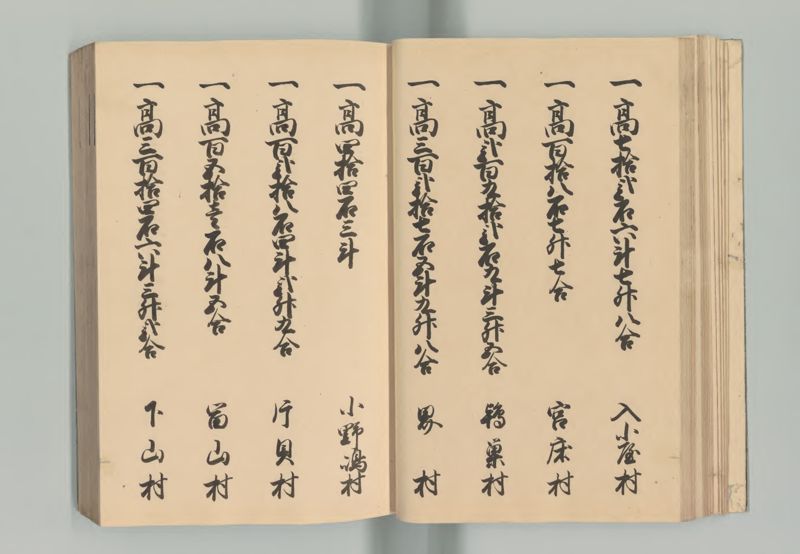 一高七拾弐石六斗七升八合 入小屋村
一高百拾八石七升七合 宮床村
一高弐百九拾弐石九斗三升五合 鴇巣村
一高三百弐拾七石五斗九升八合 界村
一高四拾四石三斗 小野嶋村
一高百弐拾八石四斗弐升九合 片貝村
一高百五拾壱石八斗五合 富山村
一高三百拾四石六斗三升弐合 下山村